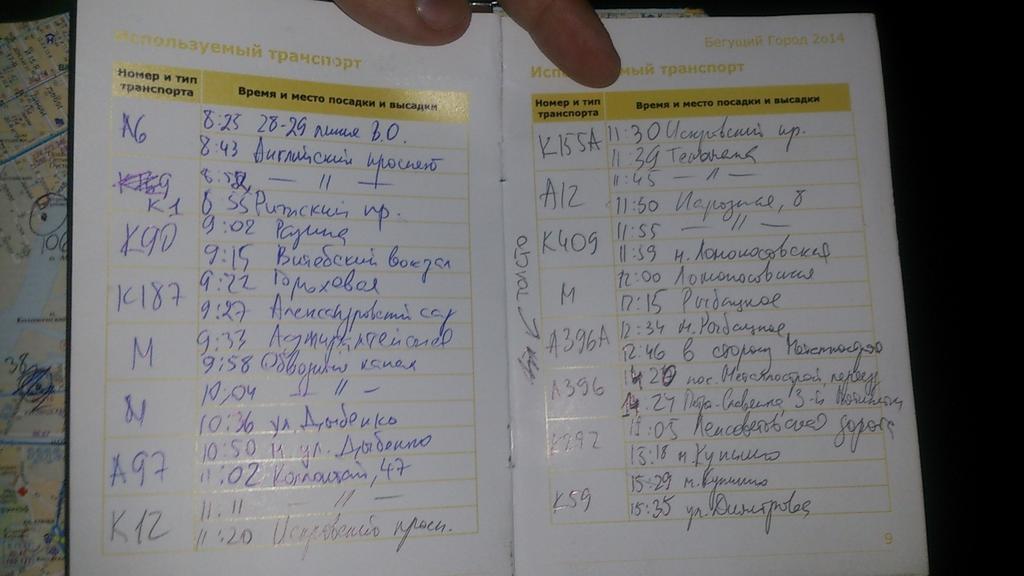 Используемый транспорт
Номер и тип транспорта
Время и место посадки и высадки
А6
8:23 28-29 линия В.О.
8:43 Английский проспект
К1
8:52 — " —
8:55 Рижский пр.
К90
9:02 Разина
9:15 Витебский вокзал
К187
9:22 Гороховая
9:27 Александровский сад
М
9:33 Адмиралтейская
9:58 Обводный канал
М
10:04 — " —
10:36 ул. Дыбенко
А97
10:50 м. ул. Дыбенко
11:02 Коллонтай, 47
К12
11:11 — " —
11:20 Искровский просп.
Бегущий Город 2014
Используемый транспорт
Номер и тип транспорта
Время и место посадки и высадки
К155А
11:30 Искровский пр.
11:39 Тельмана
А12
11:45 — " —
11:50 Народная, 8
К409
11:55 — " —
11:59 м. Ломоносовская
М
12:00 Ломоносовская
12:15 Рыбацкое
А396А
12:34 м. Рыбацкое
12:46 в сторону
А396
пос. Металлострой,
14:27
К292
Ленсоветовская дорога
15:18 м Купчино
К59
15:29 м. Купчино
15:35 ул. Димитрова
9